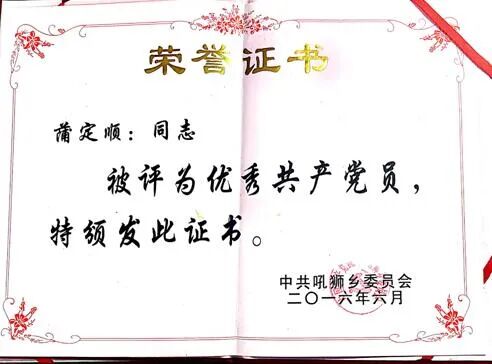 荣誉证书
蒲定顺：同志
被评为优秀共产党员，
特颁发此证书。
中共吼狮乡委员会
二〇一六年六月